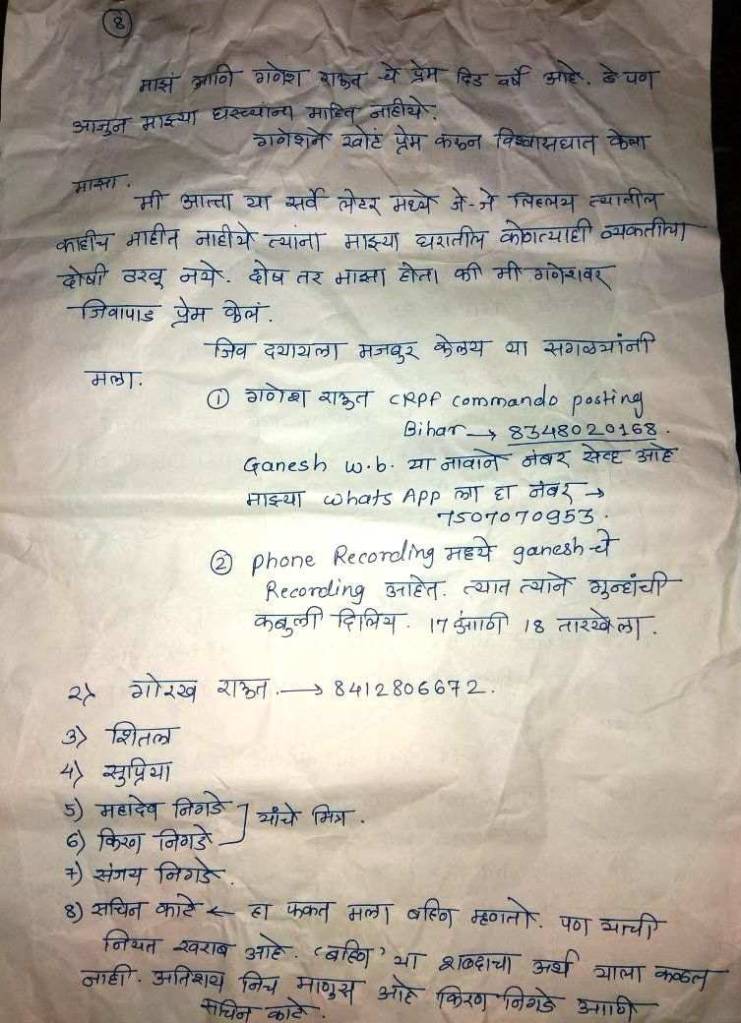 8
माझं आणि गणेश राऊत चे प्रेम दिड वर्षे आहे. हे पण
आजुन माझ्या घरच्यांना माहित नाहीये.
गणेशने खोटं प्रेम करून विश्वासघात केला
माझा.
मी आत्ता या सर्व लेटर मध्ये जे-जे लिहलय त्यातील
काहीच माहीत नाहीये त्यांना माझ्या घरातील कोणत्याही व्यक्तीला
दोषी ठरवू नये. दोष तर माझा होता की मी गणेशवर
जिवापाड प्रेम केलं.
जिव दयायला मजबुर केलय या सगळ्यांनी
मला.
① गणेश राऊत CRPF commando posting
Bihar → 8348020168.
Ganesh w.b. या नावाने नंबर सेव्ह आहे
माझ्या whats App ला हा नंबर →
7507070953.
② phone Recording मध्ये ganesh-चे
Recording आहेत. त्यात त्याने गुन्हांची
कबुली दिलिय. 17 आणि 18 तारखेला.
2) गोरख राऊत. → 8412806672.
3) शितल
4) सुप्रिया
5) महादेव निगडे
6) किरण निगडे ] यांचे मित्र.
7) संजय निगडे.
8) सचिन काटे ← हा फक्त मला बहिण म्हणतो. पण याची
नियत खराब आहे. 'बहिण' या शब्दाचा अर्थ याला कळत
नाही. अतिशय निच माणुस आहे किरण निगडे आणि
सचिन काटे.